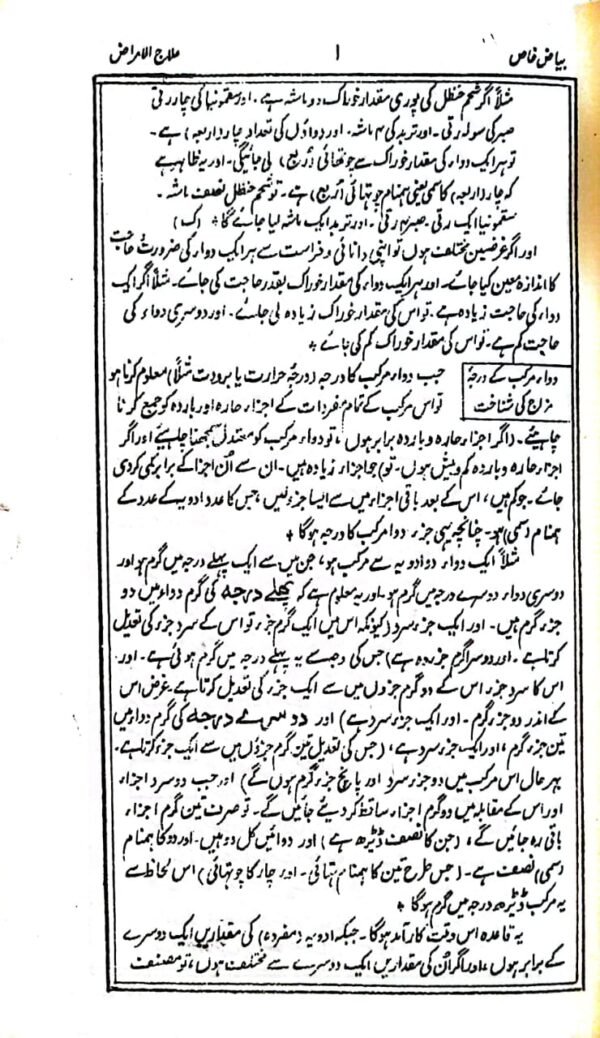 بیاض خاص ۱ علاج الامراض
مثلاً اگر شحم حنظل کی پوری مقدار خوراک دو ماشہ ہے۔ اور سقمونیا کی چار رتی
صبر کی سولہ رتی۔ اور تربد کی ۴ ماشہ۔ اور دواؤں کی تعداد چار (اربعہ) ہے۔
تو ہر ایک دواء کی مقدار خوراک سے چوتھائی (ربع) لی جائیگی۔ اور یہ ظاہر ہے
کہ چار (اربعہ) کا سمی یعنی ہمنام چوتھائی (ربع) ہے۔ تو شحم حنظل نصف ماشہ۔
سقمونیا ایک رتی۔ صبر ۴ رتی۔ اور تربد ایک ماشہ لیا جائے گا * (ک)
اور اگر غرضیں مختلف ہوں تو اپنی دانائی و فراست سے ہر ایک دواء کی ضرورت و حاجت
کا اندازہ معین کیا جائے۔ اور ہر ایک دواء کی مقدار خوراک بقدر حاجت کی جائے۔ مثلاً اگر ایک
دواء کی حاجت زیادہ ہے۔ تو اس کی مقدار خوراک زیادہ لی جائے۔ اور دوسری دواء کی
حاجت کم ہے۔ تو اس کی مقدار خوراک کم کی جائے *
دواء مرکب کے درجۂ
مزاج کی شناخت
جب دواء مرکب کا درجہ (درجۂ حرارت یا برودت مثلاً) معلوم کرنا ہو
تو اس مرکب کے تمام مفردات کے اجزاء حارہ اور باردہ کو جمع کرنا
چاہیئے۔ (اگر اجزاء حارہ و باردہ برابر ہوں، تو دواء مرکب کو معتدل سمجھنا چاہیئے اور اگر
اجزاء حارہ و باردہ کم و بیش ہوں۔ تو) جو اجزاء زیادہ ہیں۔ ان سے اُن اجزا کے برابر کمی کردی
جائے۔ جو کم ہیں، اس کے بعد باقی اجزاء میں سے ایسا جزء لیں، جس کا عدد ادویہ کے عدد کے
ہمنام (سمی) ہو۔ چنانچہ یہی جزء دوا مرکب کا درجہ ہوگا *
مثلاً ایک دواء دو ادویہ سے مرکب ہو، جن میں سے ایک پہلے درجہ میں گرم ہو اور
دوسری دواء دوسرے درجہ میں گرم ہو۔ اور یہ معلوم ہے کہ پہلے درجہ کی گرم دواء میں دو
جزء گرم ہیں۔ اور ایک جزء سرد (کیونکہ اس میں ایک گرم جزء تو اس کے سرد جزء کی تعدیل
کرتا ہے۔ اور دوسرا گرم جزء وہ ہے) جس کی وجہ سے یہ پہلے درجہ میں گرم ہوئی ہے۔ اور
اس کا سرد جزء اس کے دو گرم جزوں میں سے ایک جزء کی تعدیل کرتا ہے۔ غرض اس
کے اندر دو جزء گرم۔ اور ایک جزء سرد ہے) اور دوسرے درجہ کی گرم دواء میں
تین جزء گرم، اور ایک جزء سرد ہے، (جس کی تعدیل تین گرم جزؤں میں سے ایک جزء کرتا ہے۔
بہر حال اس مرکب میں دو جزء سرد اور پانچ جزء گرم ہوں گے) اور جب دو سرد اجزاء
اور اس کے مقابلہ میں دو گرم اجزاء ساقط کر دیئے جائیں گے۔ تو صرف تین گرم اجزاء
باقی رہ جائیں گے، (جن کا نصف ڈیڑھ ہے) اور دوائیں کل دو ہیں۔ اور دو کا ہمنام
(سمی) نصف ہے۔ (جس طرح تین کا ہمنام تہائی۔ اور چار کا چوتھائی) اس لحاظ سے
یہ مرکب ڈیڑھ درجہ میں گرم ہوگا *
یہ قاعدہ اس وقت کارآمد ہوگا۔ جبکہ ادویہ (مفردہ) کی مقداریں ایک دوسرے
کے برابر ہوں، اور اگر اُن کی مقداریں ایک دوسرے سے مختلف ہوں، تو مصنف